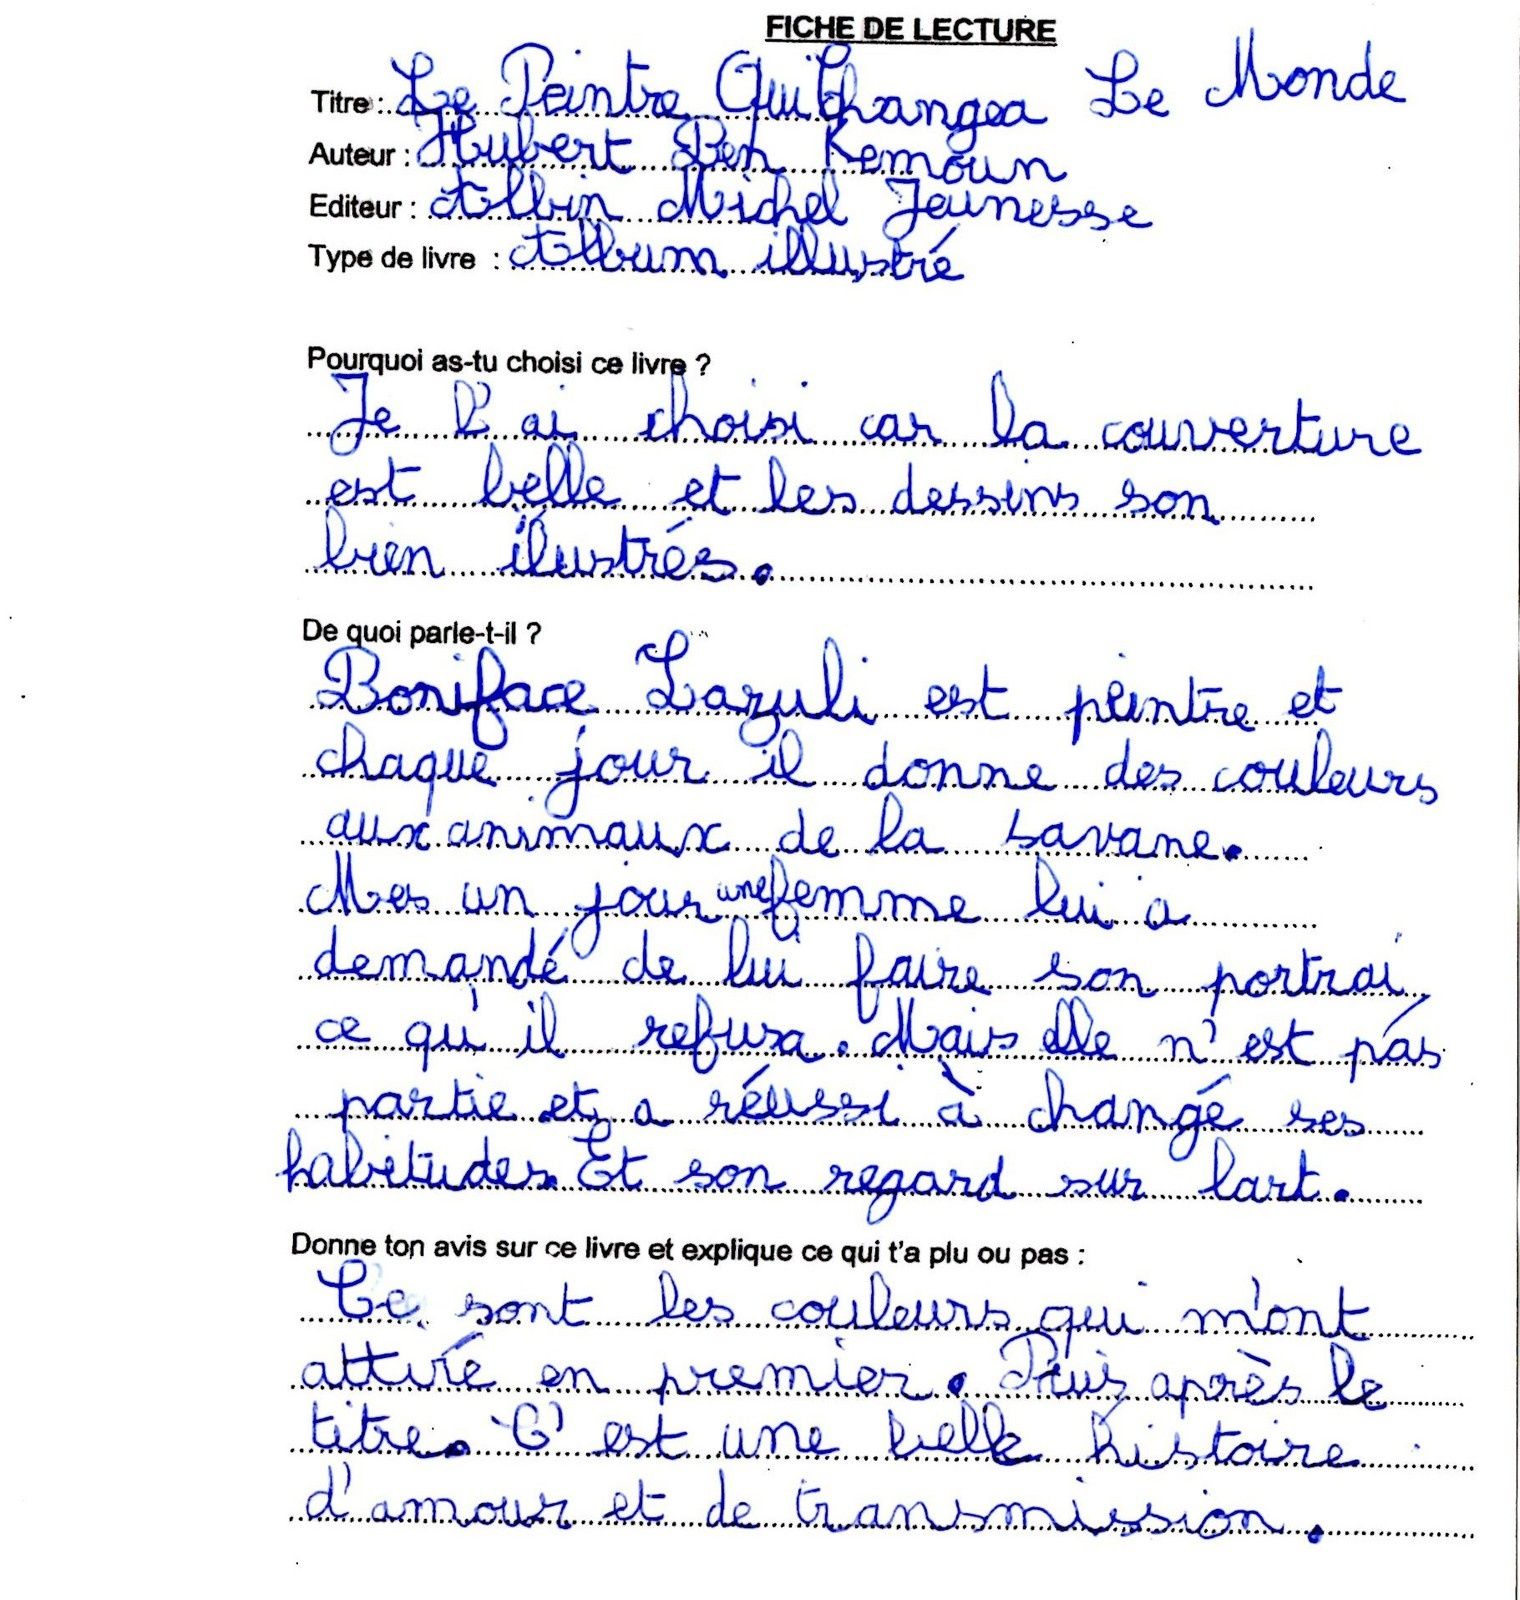 FICHE DE LECTURE
Titre : Le Peintre Qui Changea Le Monde
Auteur : Hubert Ben Kemoun
Editeur : Albin Michel Jeunesse
Type de livre : Album illustré
Pourquoi as-tu choisi ce livre ?
Je l'ai choisi car la couverture
est belle et les dessins son
bien ilustrés.
De quoi parle-t-il ?
Boniface Lazuli est peintre et
chaque jour il donne des couleurs
aux animaux de la savane.
Mes un jour une femme lui a
demandé de lui faire son portrai,
ce qu'il refusa. Mais elle n'est pas
partie et a réussi à changé ses
habitudes. Et son regard sur lart.
Donne ton avis sur ce livre et explique ce qui t'a plu ou pas :
Ce sont les couleurs qui m'ont
attiré en premier. Puis après le
titre. C'est une belle histoire
d'amour et de transmission.